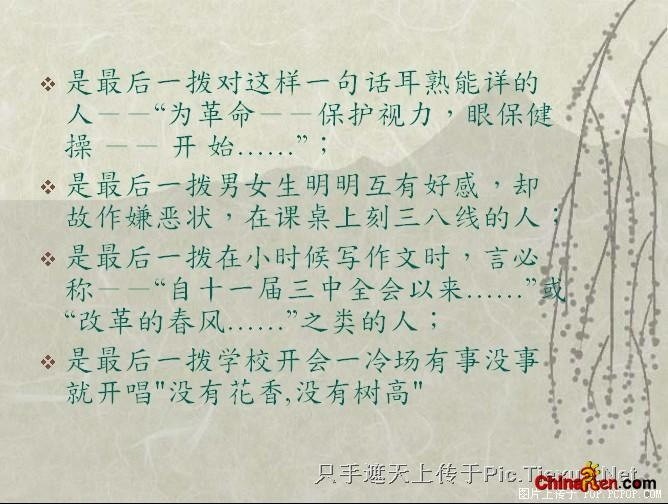 是最后一拨对这样一句话耳熟能详的
人——“为革命——保护视力，眼保健
操 —— 开 始……”；
是最后一拨男女生明明互有好感，却
故作嫌恶状，在课桌上刻三八线的人；
是最后一拨在小时候写作文时，言必
称——“自十一届三中全会以来……”或
“改革的春风……”之类的人；
是最后一拨学校开会一冷场有事没事
就开唱"没有花香,没有树高"
只手遮天上传于Pic.Tiexue.Net
ChinaRen.com
图片上传于 POP.PCPOP.COM